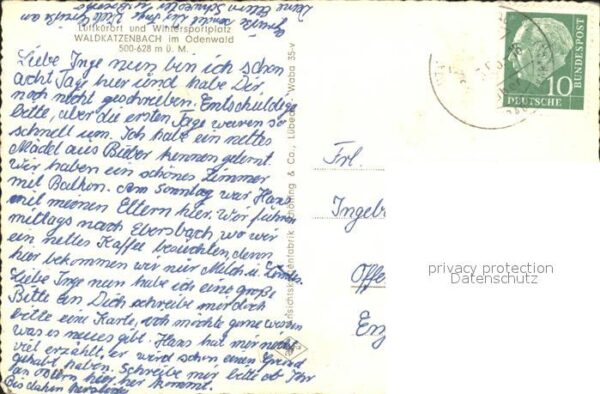 Luftkurort und Wintersportplatz
WALDKATZENBACH im Odenwald
500-628 m ü. M.
Liebe Inge nun bin ich schon
acht Tage hier und habe Dir
noch nicht geschrieben. Entschuldige
bitte, aber die ersten Tage waren so
schnell um. Ich habe ein nettes
Mädel aus Bieber kennen gelernt.
Wir haben ein schönes Zimmer
mit Balkon. Am Sonntag war Hans
mit meinen Eltern hier. Wir fuhren
mittags nach Ebersbach wo wir
ein nettes Kaffee besuchten, denn
hier bekommen wir nur Milch u.
Liebe Inge nun habe ich eine große
Bitte an Dich schreibe mir doch
bitte eine Karte, ich möchte gerne wissen
was es neues gibt. Hans hat mir nicht
viel erzählt, er wird schon einen Grund
gehabt haben. Schreibe mir bitte ob Ihr
an Ostern hier her kommt.
Bis dahin herzliche
Ansichtskartenfabrik Schöning & Co., Lübeck
Waba 35-v
Frl.
Ingeb
Offe
10
DEUTSCHE
BUNDESPOST
privacy protection
Datenschutz